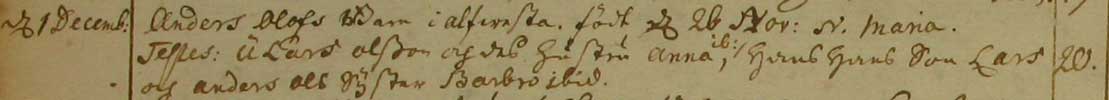 D 1 Decemb: Anders Olofs Barn i alfwesta. födt D 26 Nov: N. Maria.
Testes: ü Lars olsson og des hustru Anna ib:, Hans Hans Son Lars 20.
og anders ols Syster Barbro ibid.